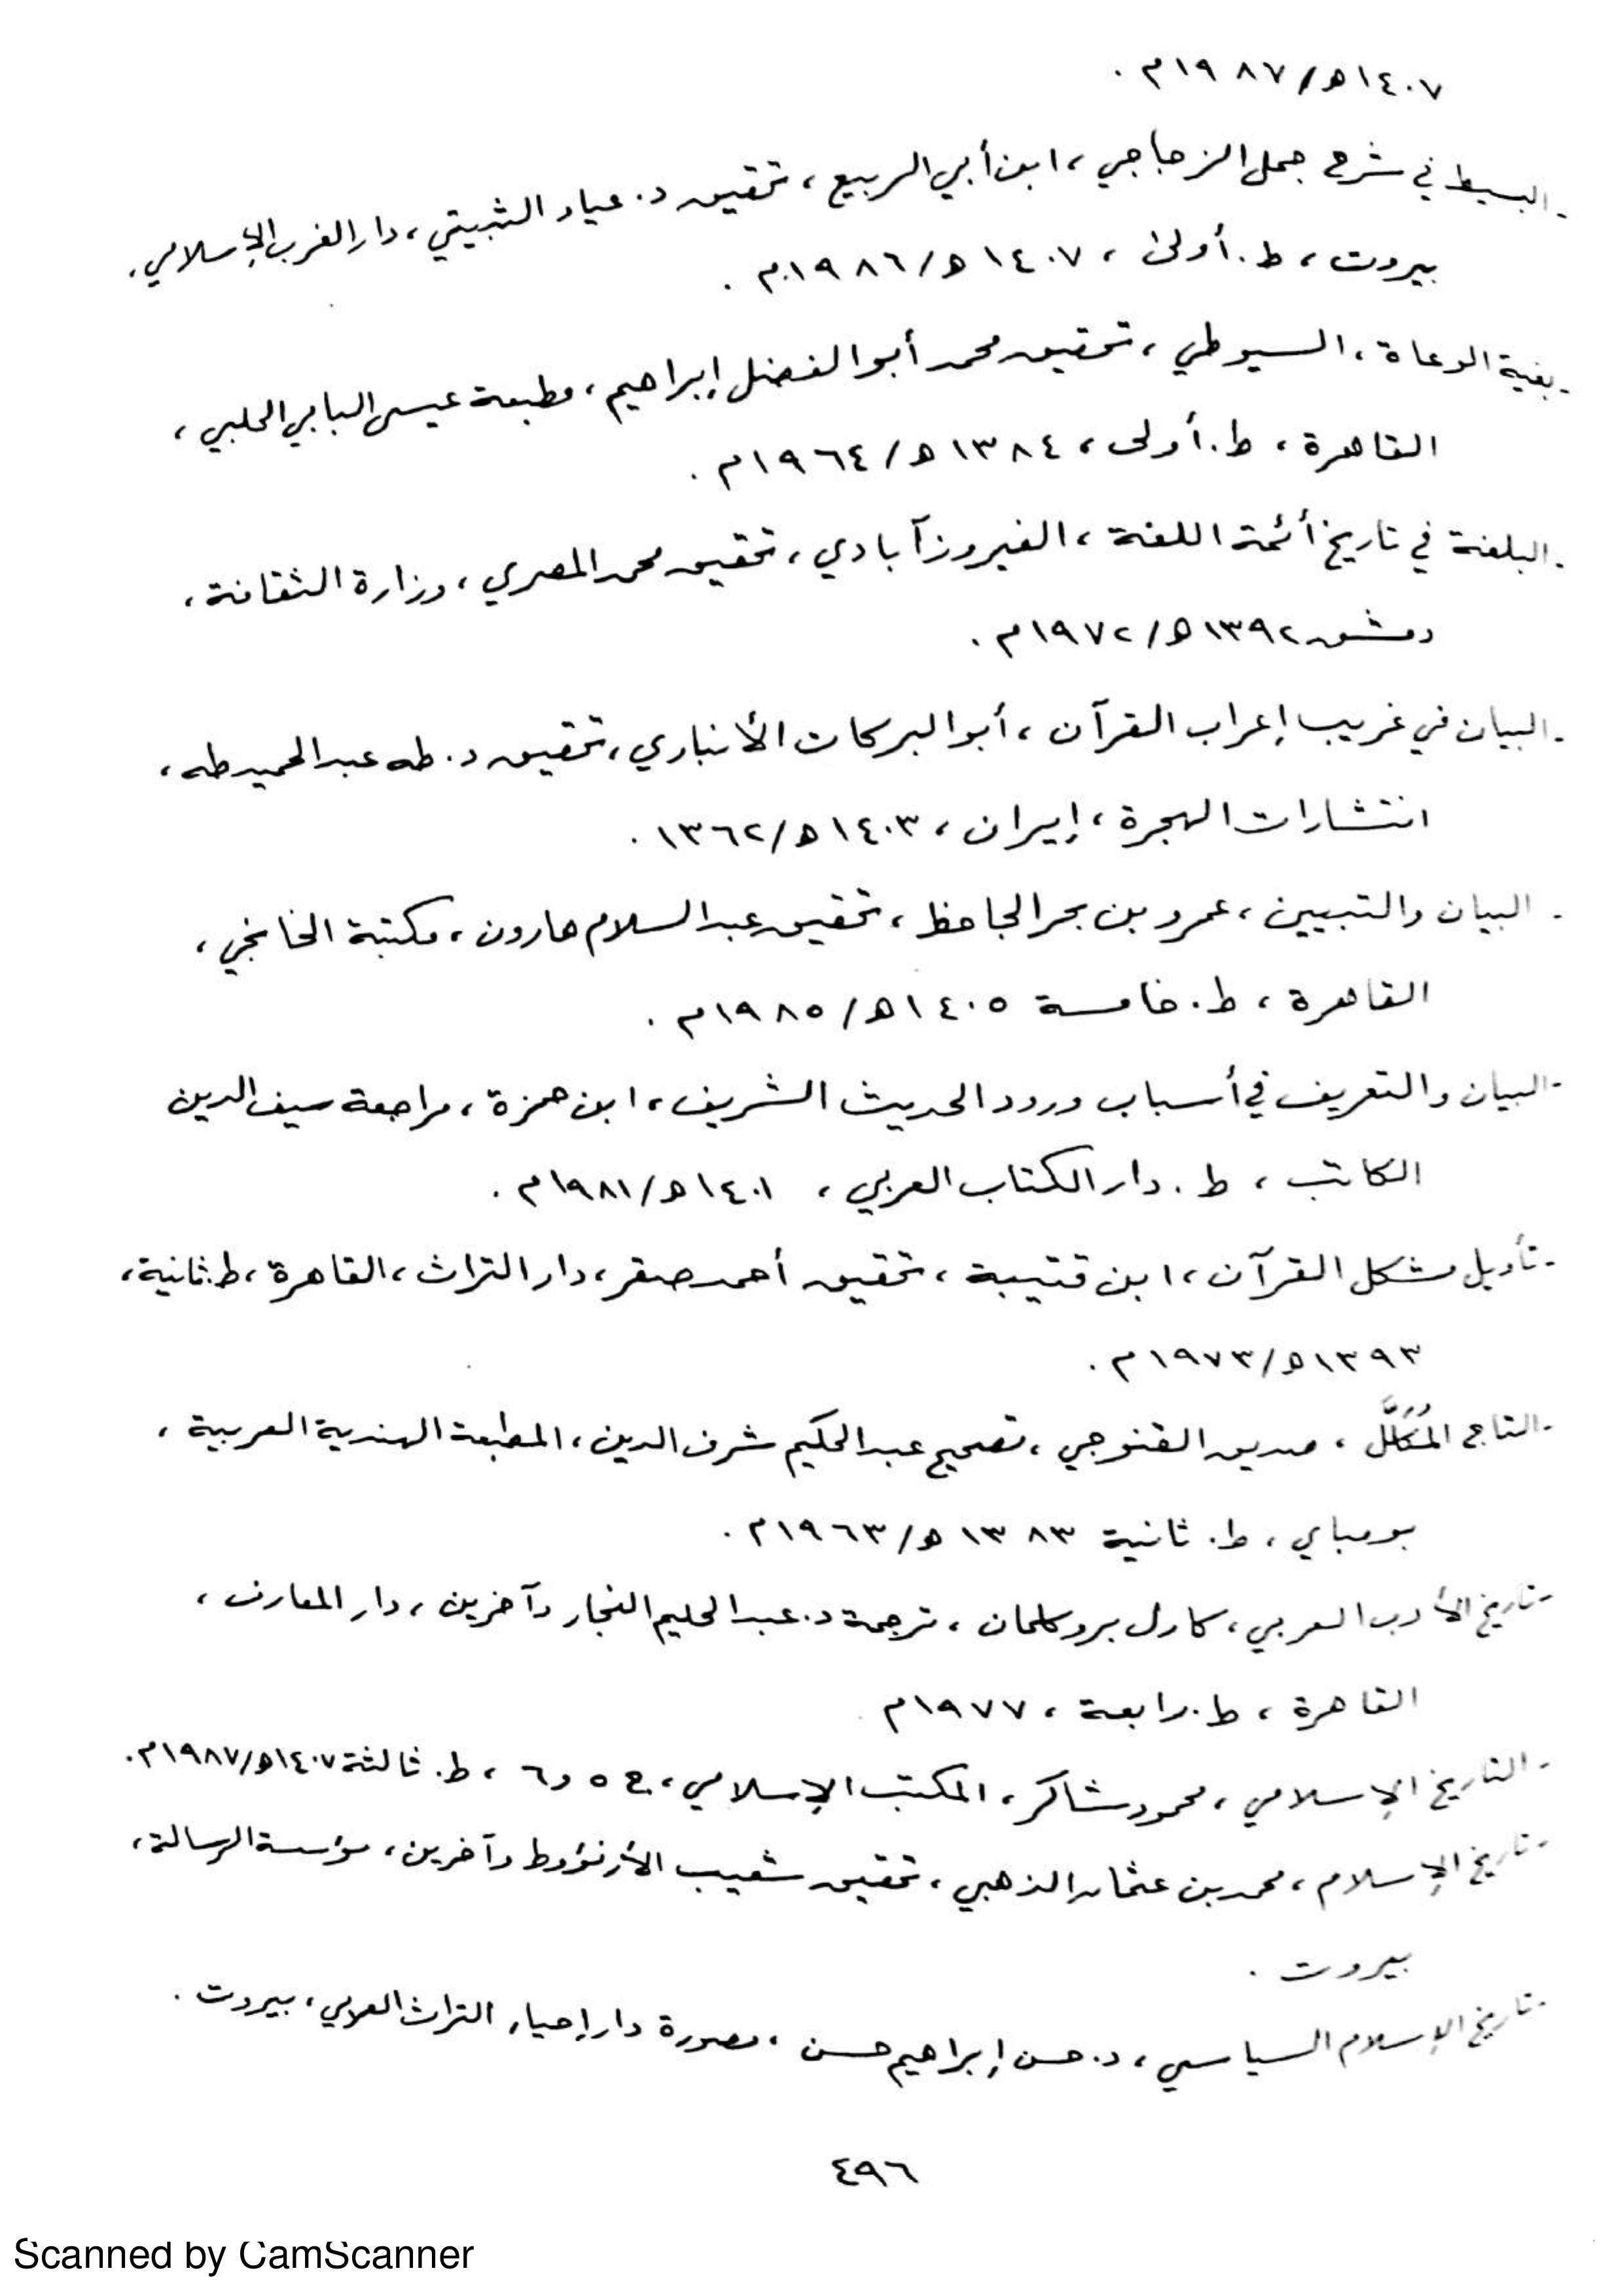 ١٤٠٧هـ/ ١٩٨٧م .
- البسيط في شرح جمل الزجاجي ، ابن أبي الربيع ، تحقيق د. عياد الثبيتي ، دار الغرب الإسلامي ،
بيروت ، ط. أولى ، ١٤٠٧هـ/ ١٩٨٦م .
- بغية الوعاة ، السيوطي ، تحقيق محمد أبو الفضل إبراهيم ، مطبعة عيسى البابي الحلبي ،
القاهرة ، ط. أولى ، ١٣٨٤هـ/ ١٩٦٤م .
- البلغة في تاريخ أئمة اللغة ، الفيروزآبادي ، تحقيق محمد المصري ، وزارة الثقافة ،
دمشق ١٣٩٢هـ/ ١٩٧٢م .
- البيان في غريب إعراب القرآن ، أبو البركات الأنباري ، تحقيق د. طه عبد الحميد طه ،
انتشارات الهجرة ، إيران ، ١٤٠٣هـ/ ١٣٦٢ .
- البيان والتبيين ، عمرو بن بحر الجاحظ ، تحقيق عبد السلام هارون ، مكتبة الخانجي ،
القاهرة ، ط. خامسة ١٤٠٥هـ/ ١٩٨٥م .
- البيان والتعريف في أسباب ورود الحديث الشريف ، ابن حمزة ، مراجعة سيف الدين
الكاتب ، ط. دار الكتاب العربي ، ١٤٠١هـ/ ١٩٨١م .
- تأويل مشكل القرآن ، ابن قتيبة ، تحقيق أحمد صقر ، دار التراث ، القاهرة ، ط. ثانية ،
١٣٩٣هـ/ ١٩٧٣م .
- التاج المُكَلَّل ، صديق القنوجي ، تصحيح عبد الحكيم شرف الدين ، المطبعة الهندية العربية ،
بومباي ، ط. ثانية ١٣٨٣هـ/ ١٩٦٣م .
- تاريخ الأدب العربي ، كارل بروكلمان ، ترجمة د. عبد الحليم النجار وآخرين ، دار المعارف ،
القاهرة ، ط. رابعة ، ١٩٧٧م
- التاريخ الإسلامي ، محمود شاكر ، المكتب الإسلامي ، ج ٥ و ٦ ، ط. ثالثة ١٤٠٧هـ/ ١٩٨٧م .
- تاريخ الإسلام ، محمد بن عثمان الذهبي ، تحقيق شعيب الأرنؤوط وآخرين ، مؤسسة الرسالة ،
بيروت .
- تاريخ الإسلام السياسي ، د. حسن إبراهيم حسن ، مصورة دار إحياء التراث العربي ، بيروت .
٤٩٦
Scanned by CamScanner